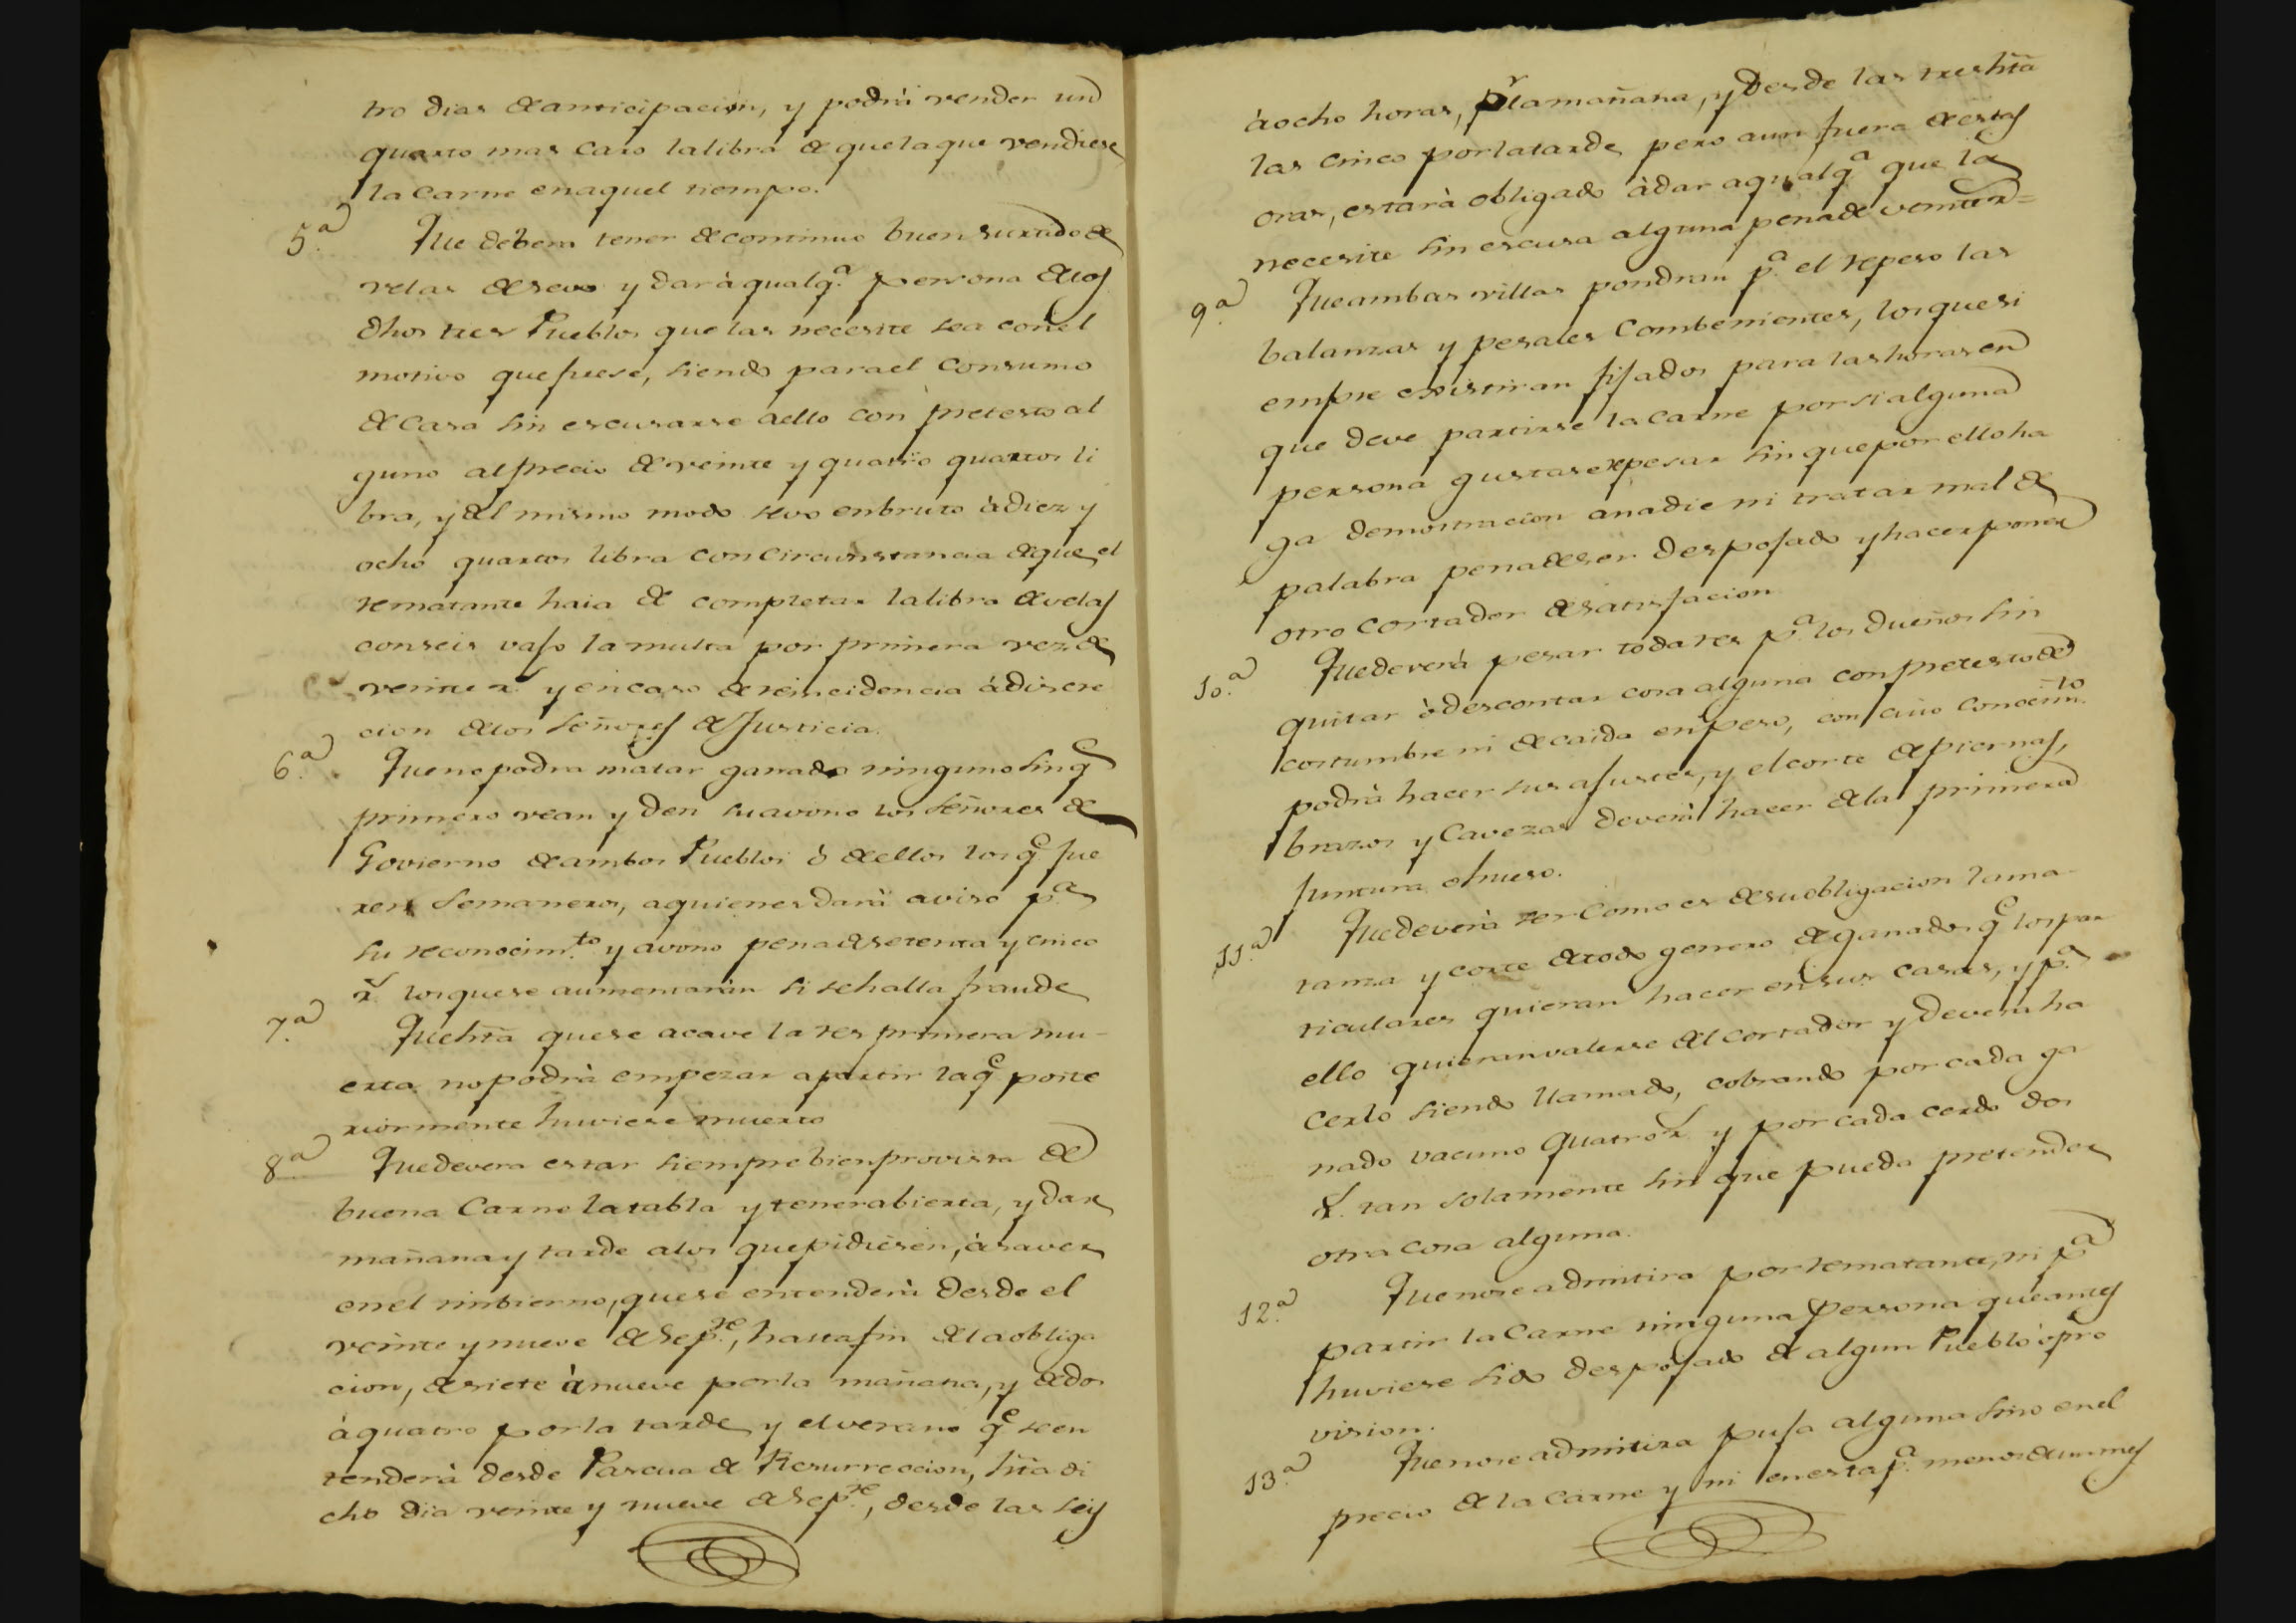 tro dias de anticipacion, y podrà vender un
quarto mas caro la libra de que la que vendiese
la carne en aquel tiempo.
5.ª Que debera tener de continuo buen surtido de
velas de sevo y dar à qualq.ª persona de los
dhos tres Pueblos que las necesite sea con el
motivo que fuese, siendo para el consumo
de casa sin escusarse a ello con pretesto al
guno al precio de veinte y quatro quartos li
bra, y del mismo modo sevo en bruto à diez y
ocho quartos libra con circunstancia de que el
rematante haia de completar la libra de velas
con seis vajo la multa por primera vez de
veinte r.s y en caso de reincidencia á discre
cion de los Señores de Justicia.
6.ª Que no podra matar ganado ninguno sin q.e
primero vean y den su avono los Señores de
Govierno de ambos Pueblos ò de ellos los q.e fue
ren Semaneros, a quienes darà aviso p.a
su reconocim.to y avono pena de setenta y cinco
r.s los que se aumentaràn si se halla fraude
7.ª Que hta que se acave la res primera mu-
erta no podrà empezar a partir la q.e poste
riormente huviese muerto
8.ª Que devera estar siempre bien provista de
buena Carne la tabla y tener abierta, y dar
mañana y tarde a los que pidiesen, à saver
en el imbierno, que se entenderà desde el
veinte y nueve de Sep.re, hasta fin de la obliga
cion, de siete à nueve por la mañana, y de dos
à quatro por la tarde y el verano q.e se en
tenderà desde Pascua de Resurreccion, hta di
cho dia veinte y nueve de Sep.re, desde las seis
à ocho horas, p.r la mañana, y desde las tres hta
las cinco por la tarde pero aun fuera de estas
oras, estarà obligado à dar a qualq.a que la
necesite sin escusa alguna pena de veinte r.s=
9.ª Que ambas villas pondran p.a el repeso las
balanzas y pesales combenientes, los que si
empre existiran fijados para las horas en
que deve partirse la carne por si alguna
persona gustase repesar sin que por ello ha
ga demostracion a nadie ni tratar mal de
palabra pena de ser despojado y hacer poner
otro cortador de satisfacion
10.ª Que deverà pesar toda res p.a los dueños sin
quitar ò descontar cosa alguna con pretesto de
costumbre ni de caida en peso, con cuio conocim.to
podrà hacer sus ajustes, y el corte de piernas,
brazos y Cavezas deverà hacer de la primera
juntura o hueso.
11.ª Que deverà ser como es de su obligacion la ma-
tanza y corte de todo genero de ganados q.e los par
ticulares quieran hacer en sus casas, y p.a
ello quieran valerse del cortador y devera ha
cerlo siendo llamado, cobrando por cada ga
nado vacuno quatro r.s y por cada cerdo dos
r.s tan solamente sin que pueda pretender
otra cosa alguna.
12.ª Que no se admitira por rematante, ni p.a
partir la Carne ninguna Persona que antes
huviese sido despojado de algun Pueblo ò pro
vision.
13.ª Que no se admitira puja alguna sino en el
precio de la carne y ni en esta p.a menos de un mes